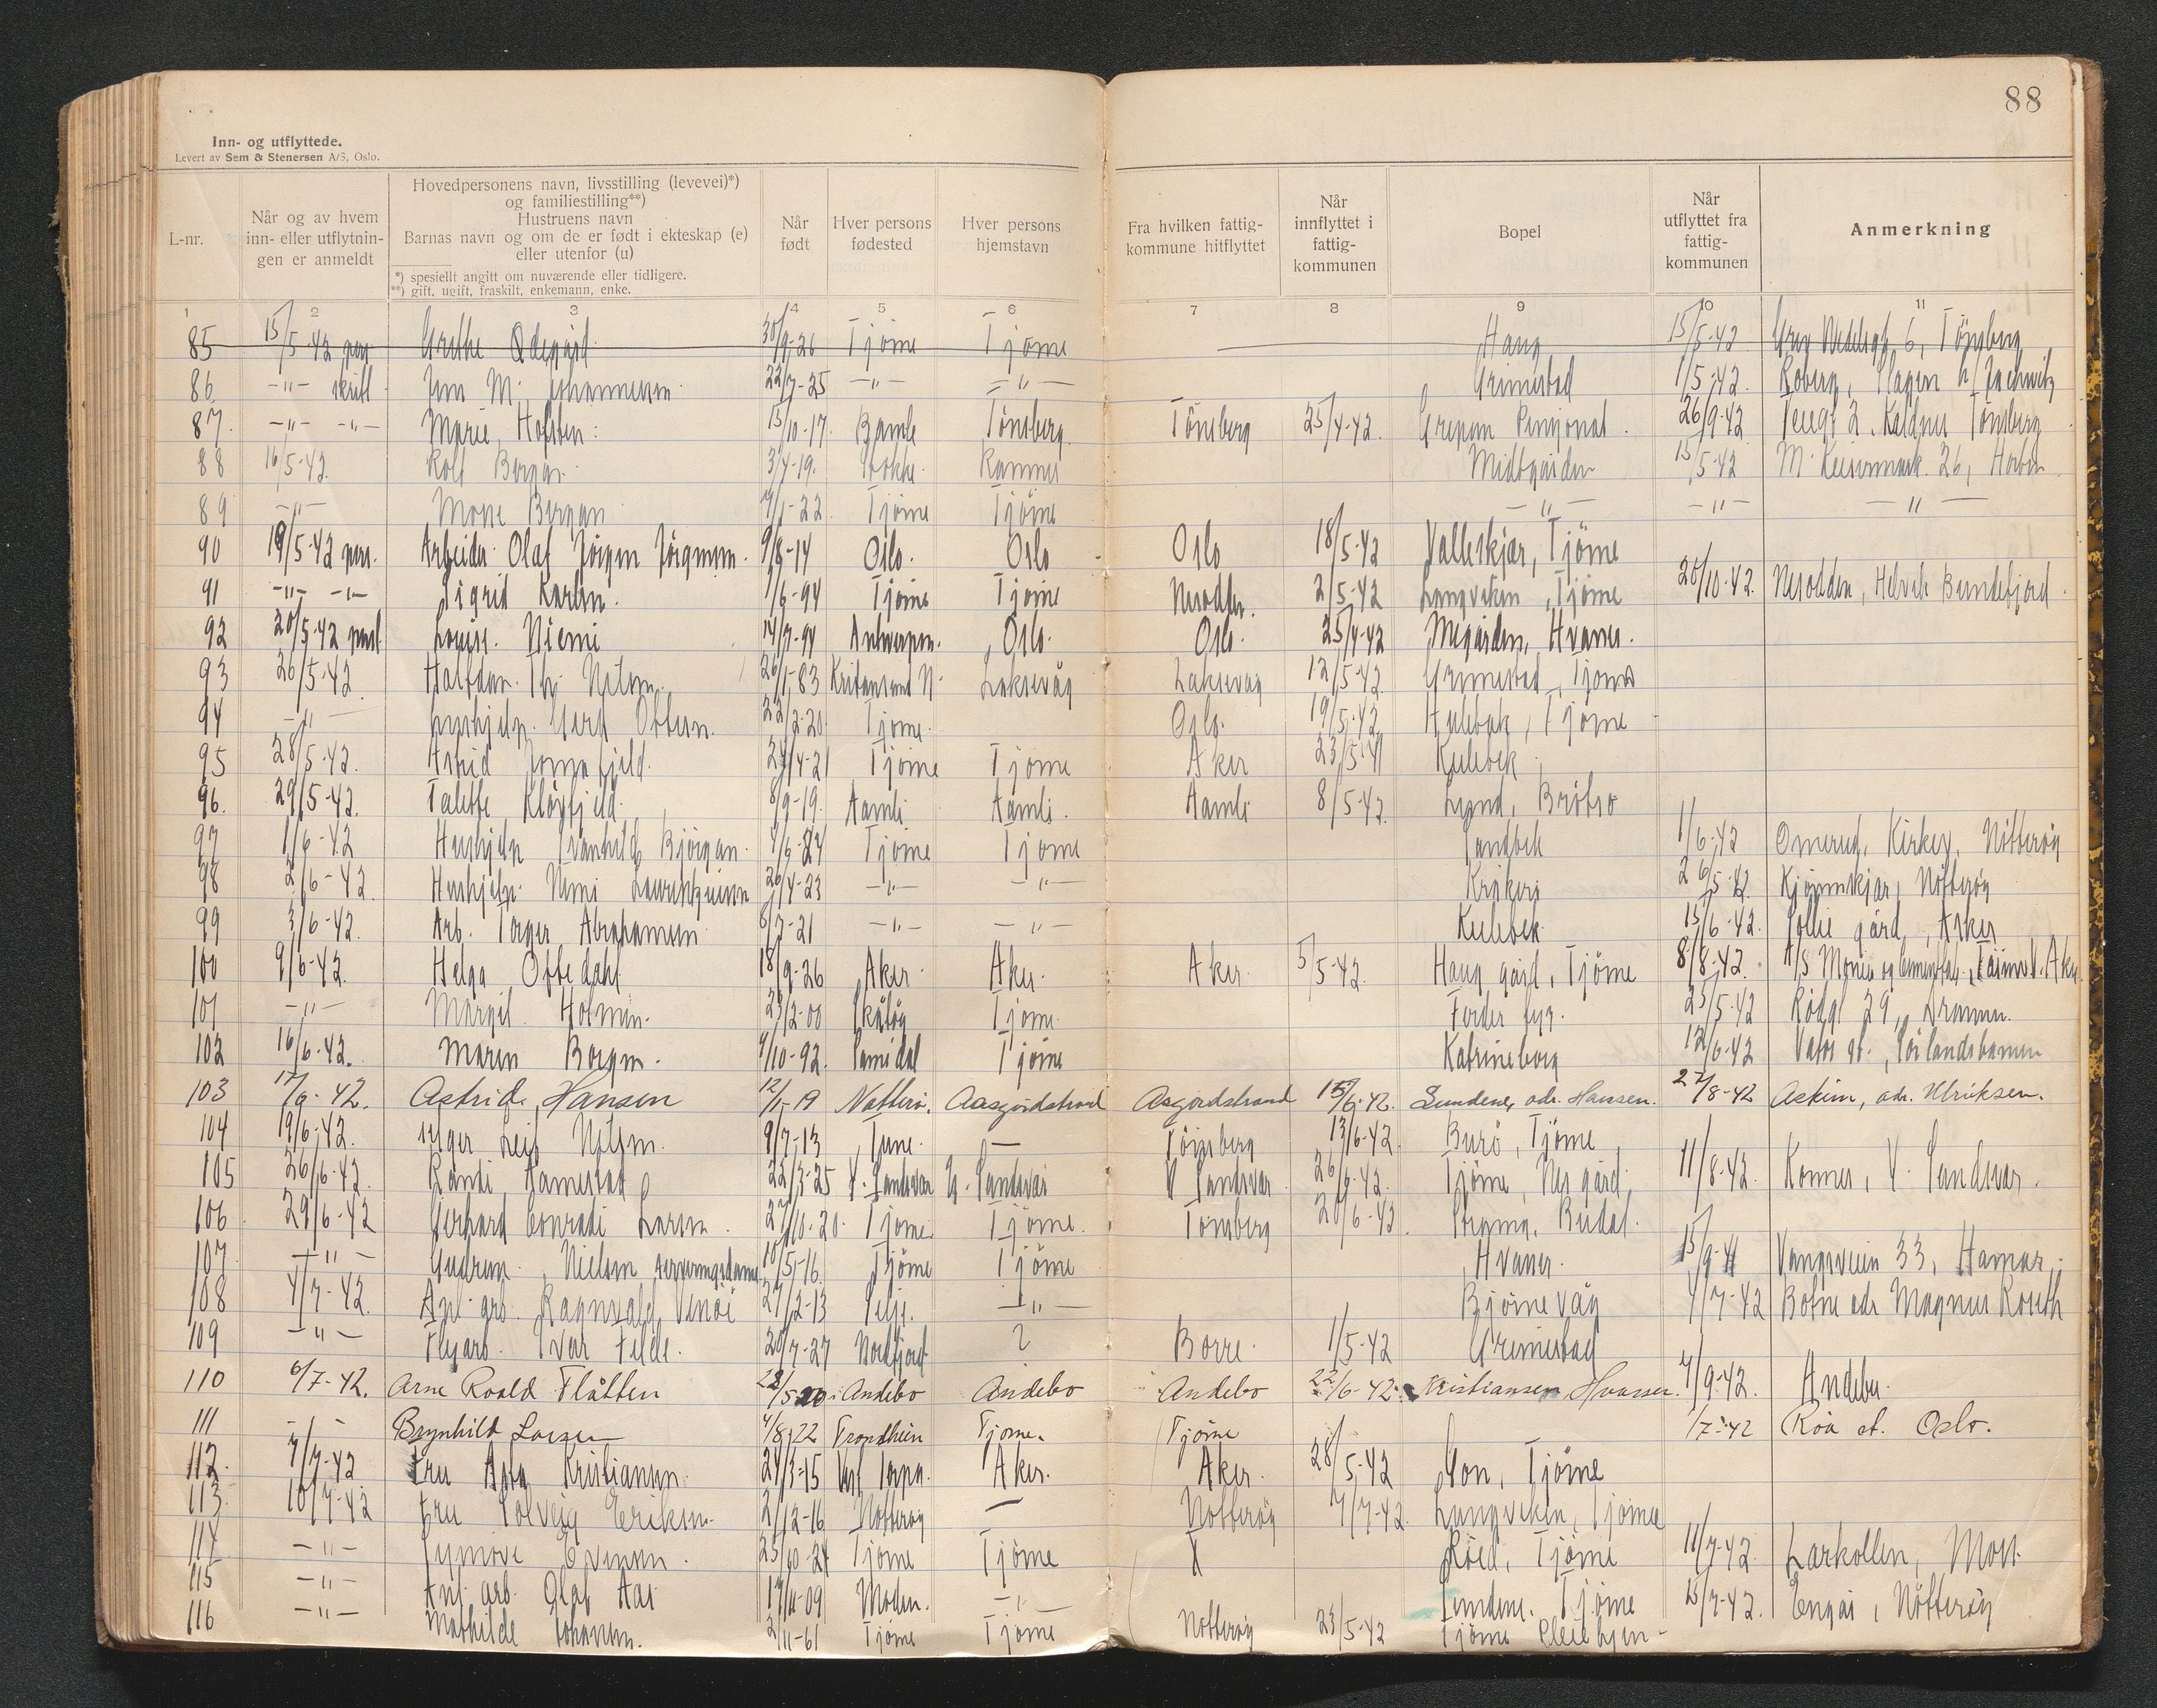 88
Inn- og utflyttede.
Levert av Sem & Stenersen A/S, Oslo.
L-nr.
Når og av hvem inn- eller utflytnin- gen er anmeldt
Hovedpersonens navn, livsstilling (levevei)*) og familiestilling**)
Hustruens navn
Barnas navn og om de er født i ekteskap (e) eller utenfor (u)
*) spesiellt angitt om nuværende eller tidligere.
**) gift, ugift, fraskilt, enkemann, enke.
Når født
Hver persons fødested
Hver persons hjemstavn
Fra hvilken fattig- kommune hitflyttet
Når innflyttet i fattig- kommunen
Bopel
Når utflyttet fra fattig- kommunen
Anmerkning
1 2 3 4 5 6 7 8 9 10 11
85 15/5-42 Grethe Ødegård 30/9-26 Tjøme Tjøme Haug 15/5-42 6, Tönsberg
86 -"- skrift. Jens M. Johannessen 22/7-25 -"- -"- Grimestad 1/5-42. Roberg, Slagen
87. -"- -"- Marie Holsten 15/10-17. Bamle Tønsberg Tönsberg 25/4-42. Grepan Pensjonat. 26/9-42 Kaldnes Tönsberg
88 16/5-42. Rolf Bergan. 3/4-19. Stokke. Ramnes Midtgården 15/5-42 26, Horten
89 -"- Bergan 4/1-22. Tjöme Tjöme -"- -"- -"-
90 19/5-42 pers. Arbeider Olaf Jörgen Jörgensen. 9/8-14 Oslo. Oslo Oslo 18/5-42 Valleskjær, Tjöme
91 -"- -"- Sigrid Karlsen. 1/6-94 Tjöme Tjöme Nesodden. 2/5-42 Langviken, Tjöme 20/10-42. Nesodden, Helvik Bundefjord.
92 20/5-42 Louise Niemi 14/7-94 Antwerpen. Oslo. Oslo. 25/4-42 Hvaser.
93 26/5-42 Halfdan Th. Nilsen. 26/1-83 Kristiansund N. Laksevåg Laksevåg 12/5-42 Grimestad, Tjöme
94 -"- Gerd Ottersen. 22/2-20. Tjöme. Oslo. 19/5-42 Hulebak, Tjöme
95 28/5-42. Astrid 24/4-21 Tjöme Tjöme Aker 23/5-41
96. 29/5-42. Talette Klöyfjeld. 8/9-19. Aamli Aamli. Aamli 8/5-42. Brötsö
97 1/6-42 Hushjelp Svanhild Björgan. 4/6-24 Tjöme Tjöme Sandbek 1/6-42 Omerud, Kirkev. Nötteröy
98 2/6-42. Hushjelp 20/4-23 -"- -"- Krökeri 26/5-42. Kjöpmannskjær, Nötteröy
99 3/6-42. Arb. Torger Abrahamsen 6/7-21 -"- -"- 15/6-42. Sollie gård, Asker
100 9/6-42. Helga Oftedahl 18/9-26 Aker. Aker. Aker. 5/5-42. Haug gård, Tjöme 8/8-42. V. Aker.
101 -"- Margit Holmen. 23/2-00 Skåtöy Tjöme. Færder fyr. 23/5-42 29, Drammen.
102 16/6-42. Maren Bergan. 4/10-92. Tjöme Katrineborg 12/6-42 Vatös st., Sörlandsbanen
103 17/6-42. Astrid Hansen 12/1-19 Nötterö. Aasgårdstrand Aasgårdstrand 15/6-42. Sundene, adr. Hansen. 27/8-42 Askim, adr. Ulriksen.
104 19/6-42. Leif Nilsen. 9/7-13 Tune. — Tönsberg 13/6-42. Burö, Tjöme
105 26/6-42. Randi Ramestad 22/3-25 Y. Sandsvær Y. Sandsvær Y Sandsvær 26/6-42. Tjöme, Nes gård. 11/8-42. Komnes, Y. Sandsvær.
106. 29/6-42 Gerhard Conradi Larsen. 27/10-20. Tjöme. Tjöme. Tönsberg 20/6-42. Budal.
107. -"- Gudrun Nielsen serveringsdame 10/5-16. Tjöme Tjöme Hvaser. 15/9-41 Vangsveien 33, Hamar.
108 4/7-42. Anl. arb. Ragnvald 27/2-13 Selje. -"- Bjørnevåg 4/7-42 Botne adr Magnus Röseth
109 -"- Flyarb. Ivar Felde. 20/7-27 Nordfjord ? Borre. 1/5-42 Grimestad
110 6/7-42. Arne Roald Flåtten 22/5-20. Andebo Andebo Andebo 22/6-42. Kristiansen Hvasser. 4/9-42. Andebu.
111 -"- Brynhild Larsen 4/8-22 Trondheim Tjöme. Tjöme 1/7-42 Röa st. Oslo.
112. 7/7-42 Fru Asta Kristiansen. 24/3-15 Aker. Aker. 28/5-42 Mon, Tjöme
113. 10/7-42 Fru Solveig Eriksen. 2/12-16 Nötteröy — Nötteröy 7/7-42. Langviken, Tjöme
114 -"- Synnöve Evensen. 25/10-24 Tjöme Tjöme X Röed, Tjöme 11/7-42. Larkollen, Moss.
115 -"- Anl. arb. Olaf Aas 17/11-09 Modum. -"- Sundene. Tjöme 15/7-42. Engö, Nötteröy
116 -"- Mathilde Johansen. 2/11-61 Tjöme Tjöme Nötteröy 23/5-42 Tjöme